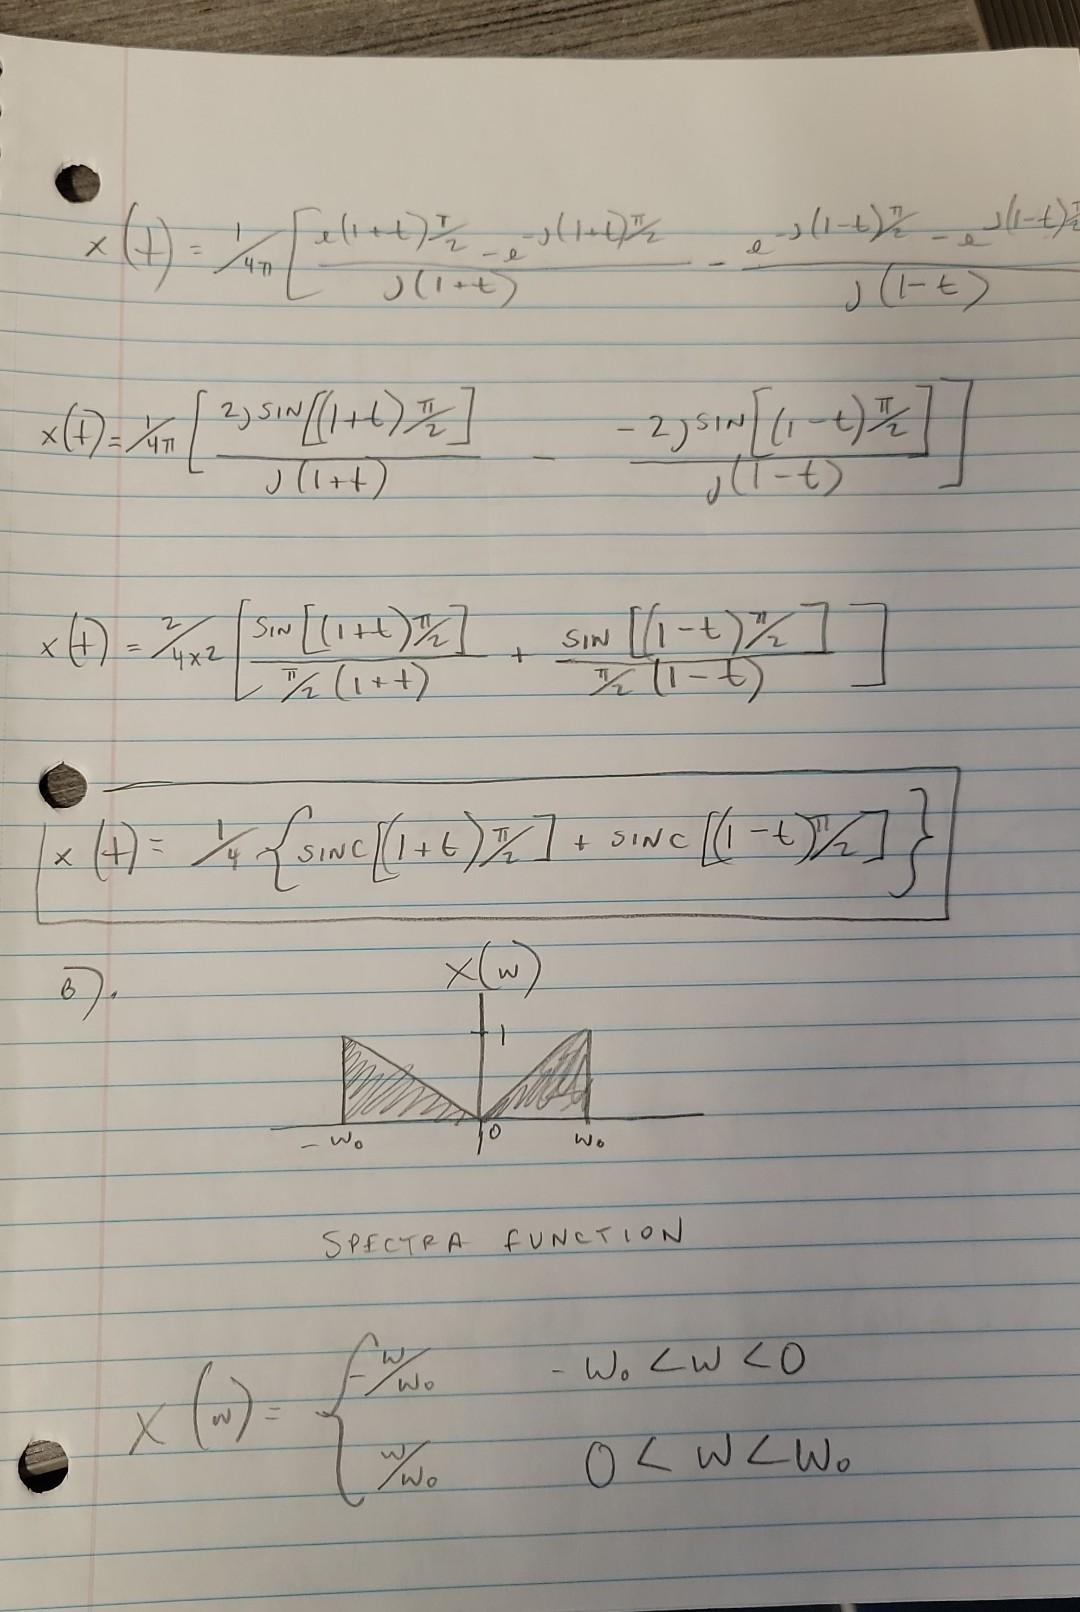 x(t) = 1/4π [ e(1+t)π/2 - e^-j(1+t)π/2 / j(1+t) - e^-j(1-t)π/2 - e^j(1-t)π/2 / j(1-t)
x(t) = 1/4π [ 2j SIN[(1+t)π/2] / j(1+t) - -2j SIN[(1-t)π/2] / j(1-t) ]
x(t) = 2/4x2 [ SIN[(1+t)π/2] / π/2 (1+t) + SIN[(1-t)π/2] / π/2 (1-t) ]
x(t) = 1/4 { SINC[(1+t)π/2] + SINC[(1-t)π/2] }
B).
X(w)
1
-w₀ 0 w₀
SPECTRA FUNCTION
X(w) = { -w/w₀ -w₀ < w < 0
w/w₀ 0 < w < w₀